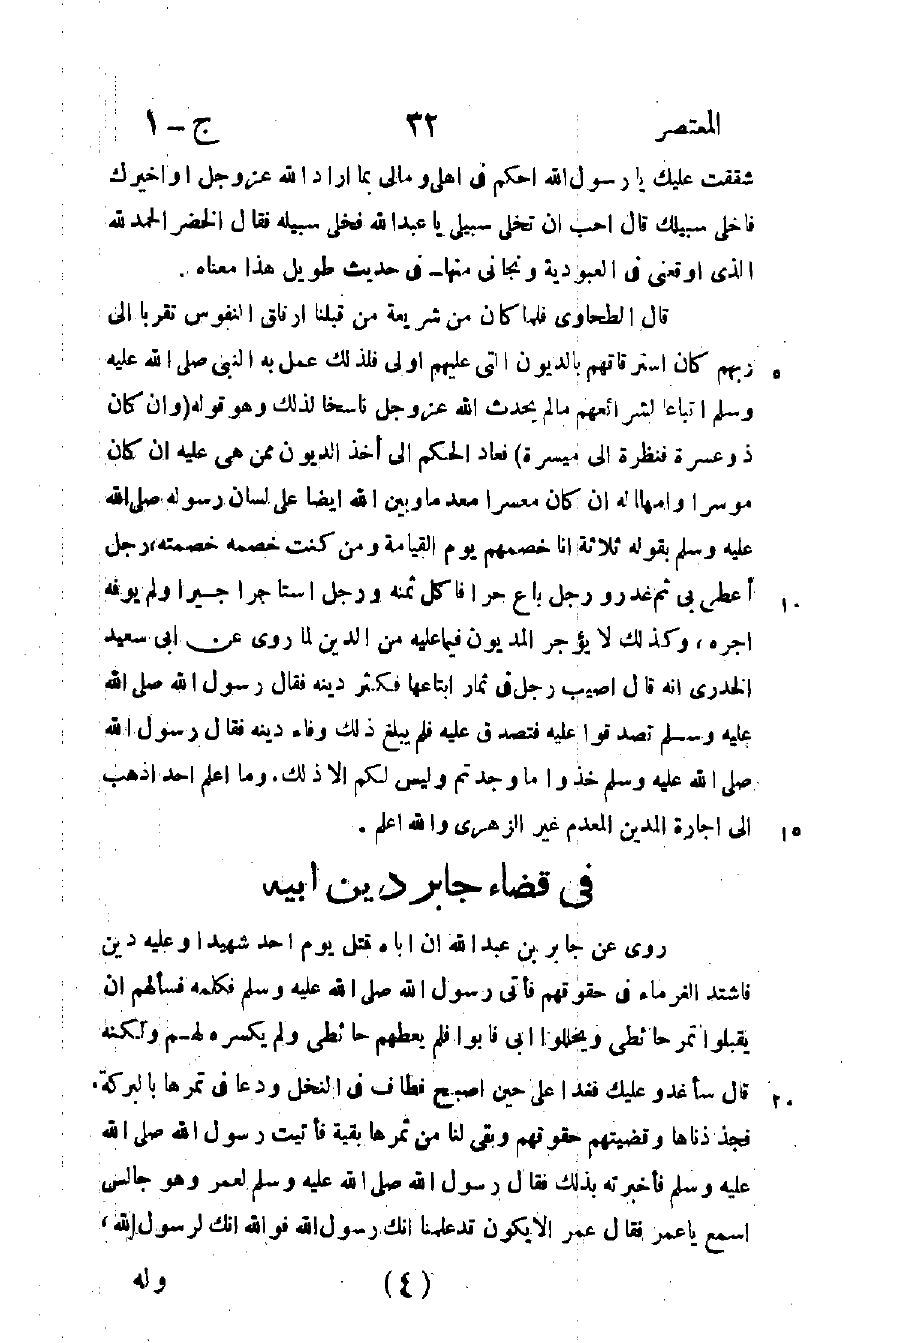 المعتصر ٣٢ ج - ١
شققت عليك يا رسول الله احكم فى اهلى ومالى بما اراد الله عز وجل او اخيرك
فاخلى سبيلك قال احب ان تخلى سبيلى يا عبد الله فخلى سبيله فقال الخضر الحمد لله
الذى اوقعنى فى العبودية ونجانى منها ـ فى حديث طويل هذا معناه .
قال الطحاوى فلما كان من شريعة من قبلنا ارقاق النفوس تقربا الى
ربهم كان استرقاقهم بالديون التى عليهم اولى فلذلك عمل به النبى صلى الله عليه ٥
وسلم اتباعا لشرائعهم مالم يحدث الله عز وجل ناسخا لذلك وهو قوله (وان كان
ذو عسرة فنظرة الى ميسرة) فعاد الحكم الى أخذ الديون ممن هى عليه ان كان
موسرا وامهاله ان كان معسرا معدما وبين الله ايضا على لسان رسوله صلى الله
عليه وسلم بقوله ثلاثة انا خصمهم يوم القيامة ومن كنت خصمه خصمته، رجل
أعطى بى ثم غدر ورجل باع حرا فاكل ثمنه ورجل استاجر اجيرا ولم يوفه ١٠
اجره، وكذلك لا يؤجر المديون فيما عليه من الدين لما روى عن ابى سعيد
الخدرى انه قال اصيب رجل فى ثمار ابتاعها فكثر دينه فقال رسول الله صلى الله
عليه وسلم تصدقوا عليه فتصدق عليه فلم يبلغ ذلك وفاء دينه فقال رسول الله
صلى الله عليه وسلم خذوا ما وجدتم وليس لكم الا ذلك . وما اعلم احد اذهب
الى اجارة المدين المعدم غير الزهرى والله اعلم . ١٥
فى قضاء جابر دين أبيه
روى عن جابر بن عبد الله ان اباه قتل يوم احد شهيدا وعليه دين
فاشتد الغرماء فى حقوقهم فأتى رسول الله صلى الله عليه وسلم فكلمه فسألهم ان
يقبلوا تمر حائطى ويحللوا ابى فابوا فلم يعطهم حائطى ولم يكسره لهم ولكنه
قال سأغدو عليك فغدا على حين اصبح فطاف فى النخل ودعا فى تمرها بالبركة . ٢٠
فجذذناها وقضيتهم حقوقهم وبقى لنا من ثمرها بقية فأتيت رسول الله صلى الله
عليه وسلم فأخبرته بذلك فقال رسول الله صلى الله عليه وسلم لعمر وهو جالس
اسمع يا عمر فقال عمر الا يكون قد علمنا انك رسول الله فوالله انك لرسول الله،
(٤) وله